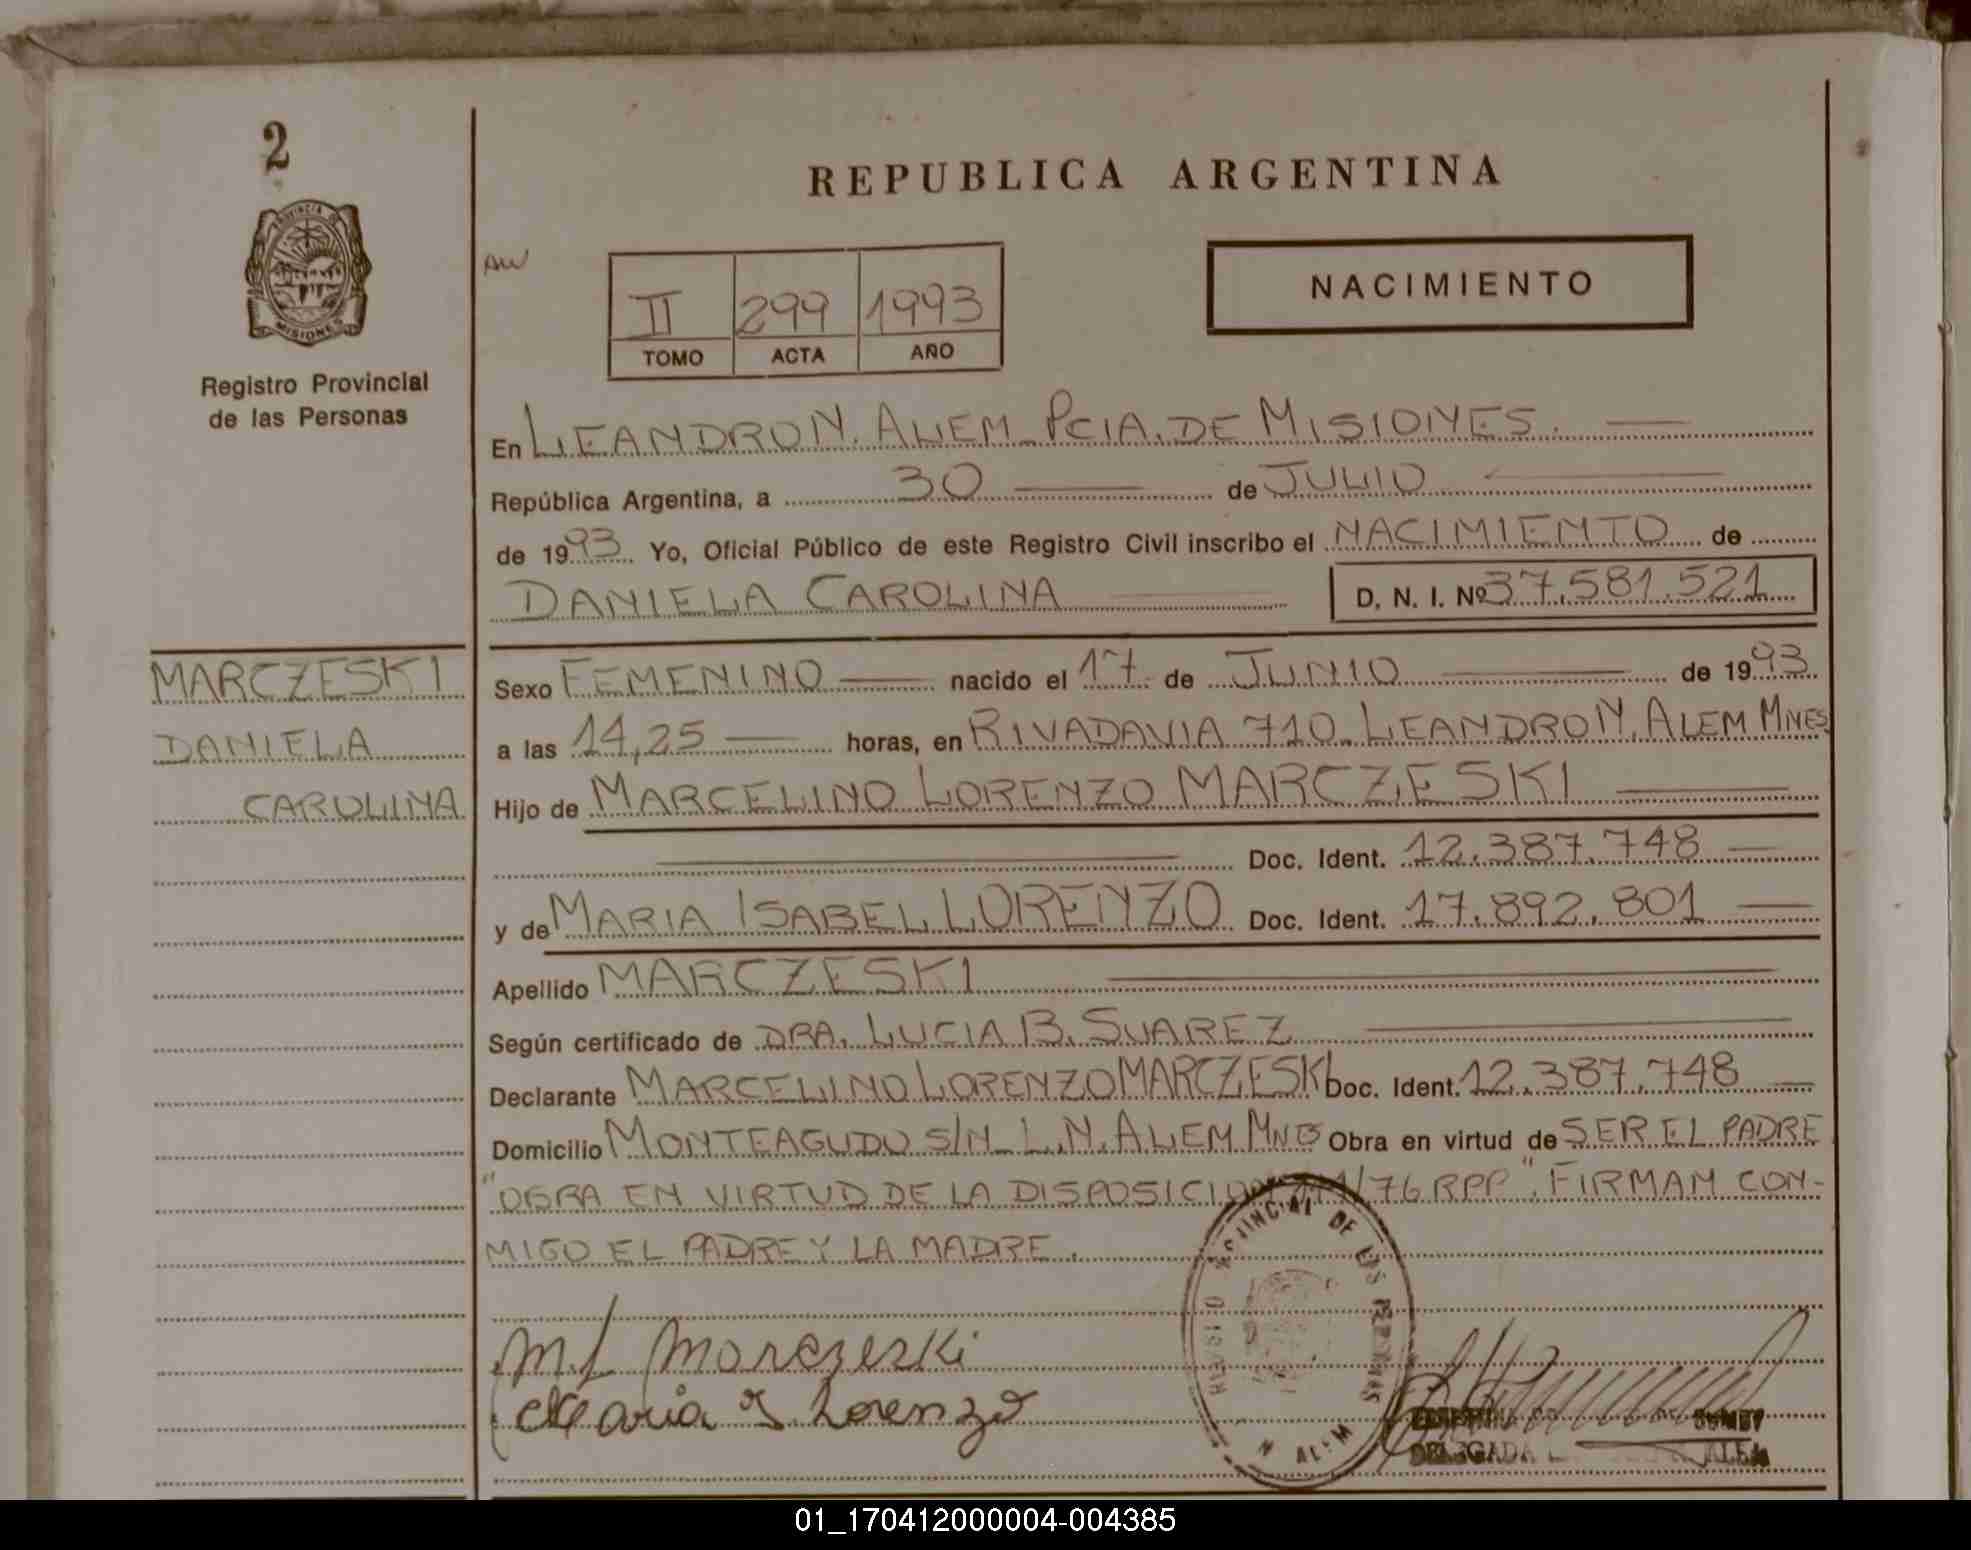 2
PROVINCIA DE
MISIONES
Registro Provincial
de las Personas
MARCZESKI
DANIELA
CAROLINA
REPUBLICA ARGENTINA
AW
II 299 1993
TOMO ACTA AÑO
NACIMIENTO
En LEANDRO N. ALEM_PCIA. DE MISIONES.
República Argentina, a 30 de JULIO
de 1993 Yo, Oficial Público de este Registro Civil inscribo el NACIMIENTO de
DANIELA CAROLINA D. N. I. Nº 37.581.521
Sexo FEMENINO nacido el 17 de JUNIO de 1993
a las 14,25 horas, en RIVADAVIA 710_LEANDRO N. ALEM MNES
Hijo de MARCELINO LORENZO MARCZESKI
Doc. Ident. 12.387.748
y de MARIA ISABEL LORENZO Doc. Ident. 17.892.801
Apellido MARCZESKI
Según certificado de DRA. LUCIA B. SUAREZ
Declarante MARCELINO LORENZO MARCZESKI Doc. Ident. 12.387.748
Domicilio MONTEAGUDO S/N_L.N. ALEM MNES Obra en virtud de SER EL PADRE
"OBRA EN VIRTUD DE LA DISPOSICION /76 RPP". FIRMAN CON-
MIGO EL PADRE Y LA MADRE.
M. L. Marczeski
Maria I Lorenzo
DE LAS PERSONAS
N ALEM
DELEGADA
01_170412000004-004385